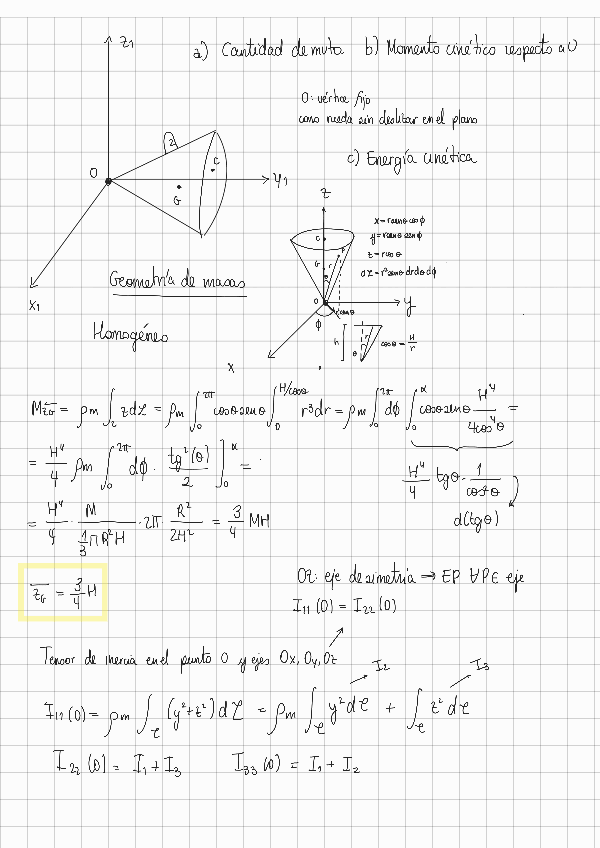 a) Cantidad de mvto b) Momento cinético respecto a O
z₁
O: vértice fijo
cono rueda sin deslizar en el plano
2
c) Energía cinética
O
C
G
y₁
z
x = r senθ cosϕ
y = r senθ senϕ
z = r cosθ
dτ = r² senθ dr dθ dϕ
C
G
θ
r
P
O
y
ϕ
r senθ
x₁
Geometría de masas
Homogéneo
x
h
θ
r
cosθ = H/r
M z_G = ρm ∫₂ z dτ = ρm ∫₀^2π cosθ senθ ∫₀^H/cosθ r³ dr = ρm ∫₀^2π dϕ ∫₀^α cosθ senθ H⁴/4cos⁴θ =
= H⁴/4 ρm ∫₀^2π dϕ · tg²(θ)/2 ]₀^α =
H⁴/4 tgθ · 1/cos²θ
d(tgθ)
= H⁴/4 · M/(1/3 π R² H) · 2π · R²/2H² = 3/4 MH
z_G = 3/4 H
Oz: eje de simetría → EP ∀P∈ eje
I₁₁(O) = I₂₂(O)
Tensor de inercia en el punto O y ejes Ox, Oy, Oz
I₂
I₃
I₁₁(O) = ρm ∫_τ (y²+z²) dτ = ρm ∫_τ y² dτ + ∫_τ z² dτ
I₂₂(O) = I₁ + I₃ I₃₃(O) = I₁ + I₂